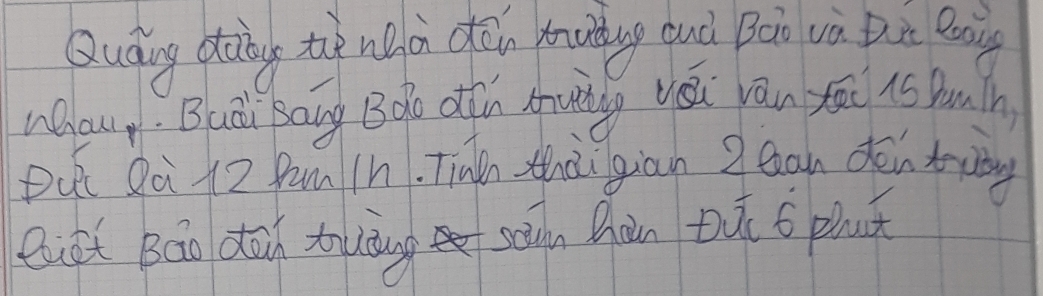 Quãng đường từ nhà đến trường của Bảo và Đức bằng
nhau. Buổi sáng Bảo đến trường với vận tốc 15 km/h,
Đức là 12 km/h. Tính thời gian 2 bạn đến trường
biết Bảo đến trường sớm hơn Đức 6 phút